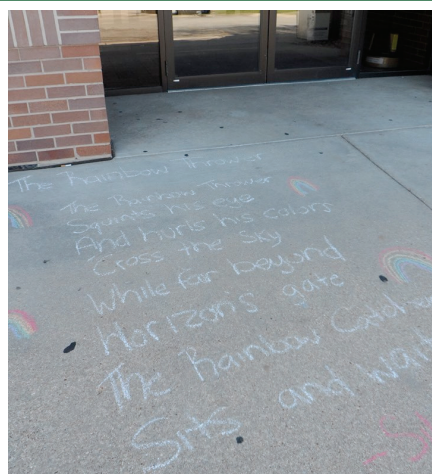 The Rainbow Thrower
The Rainbow Thrower
Squints his eye
And hurls his colors
Cross the sky
While far beyond
Horizon's gate
The Rainbow Catcher
Sits and wait